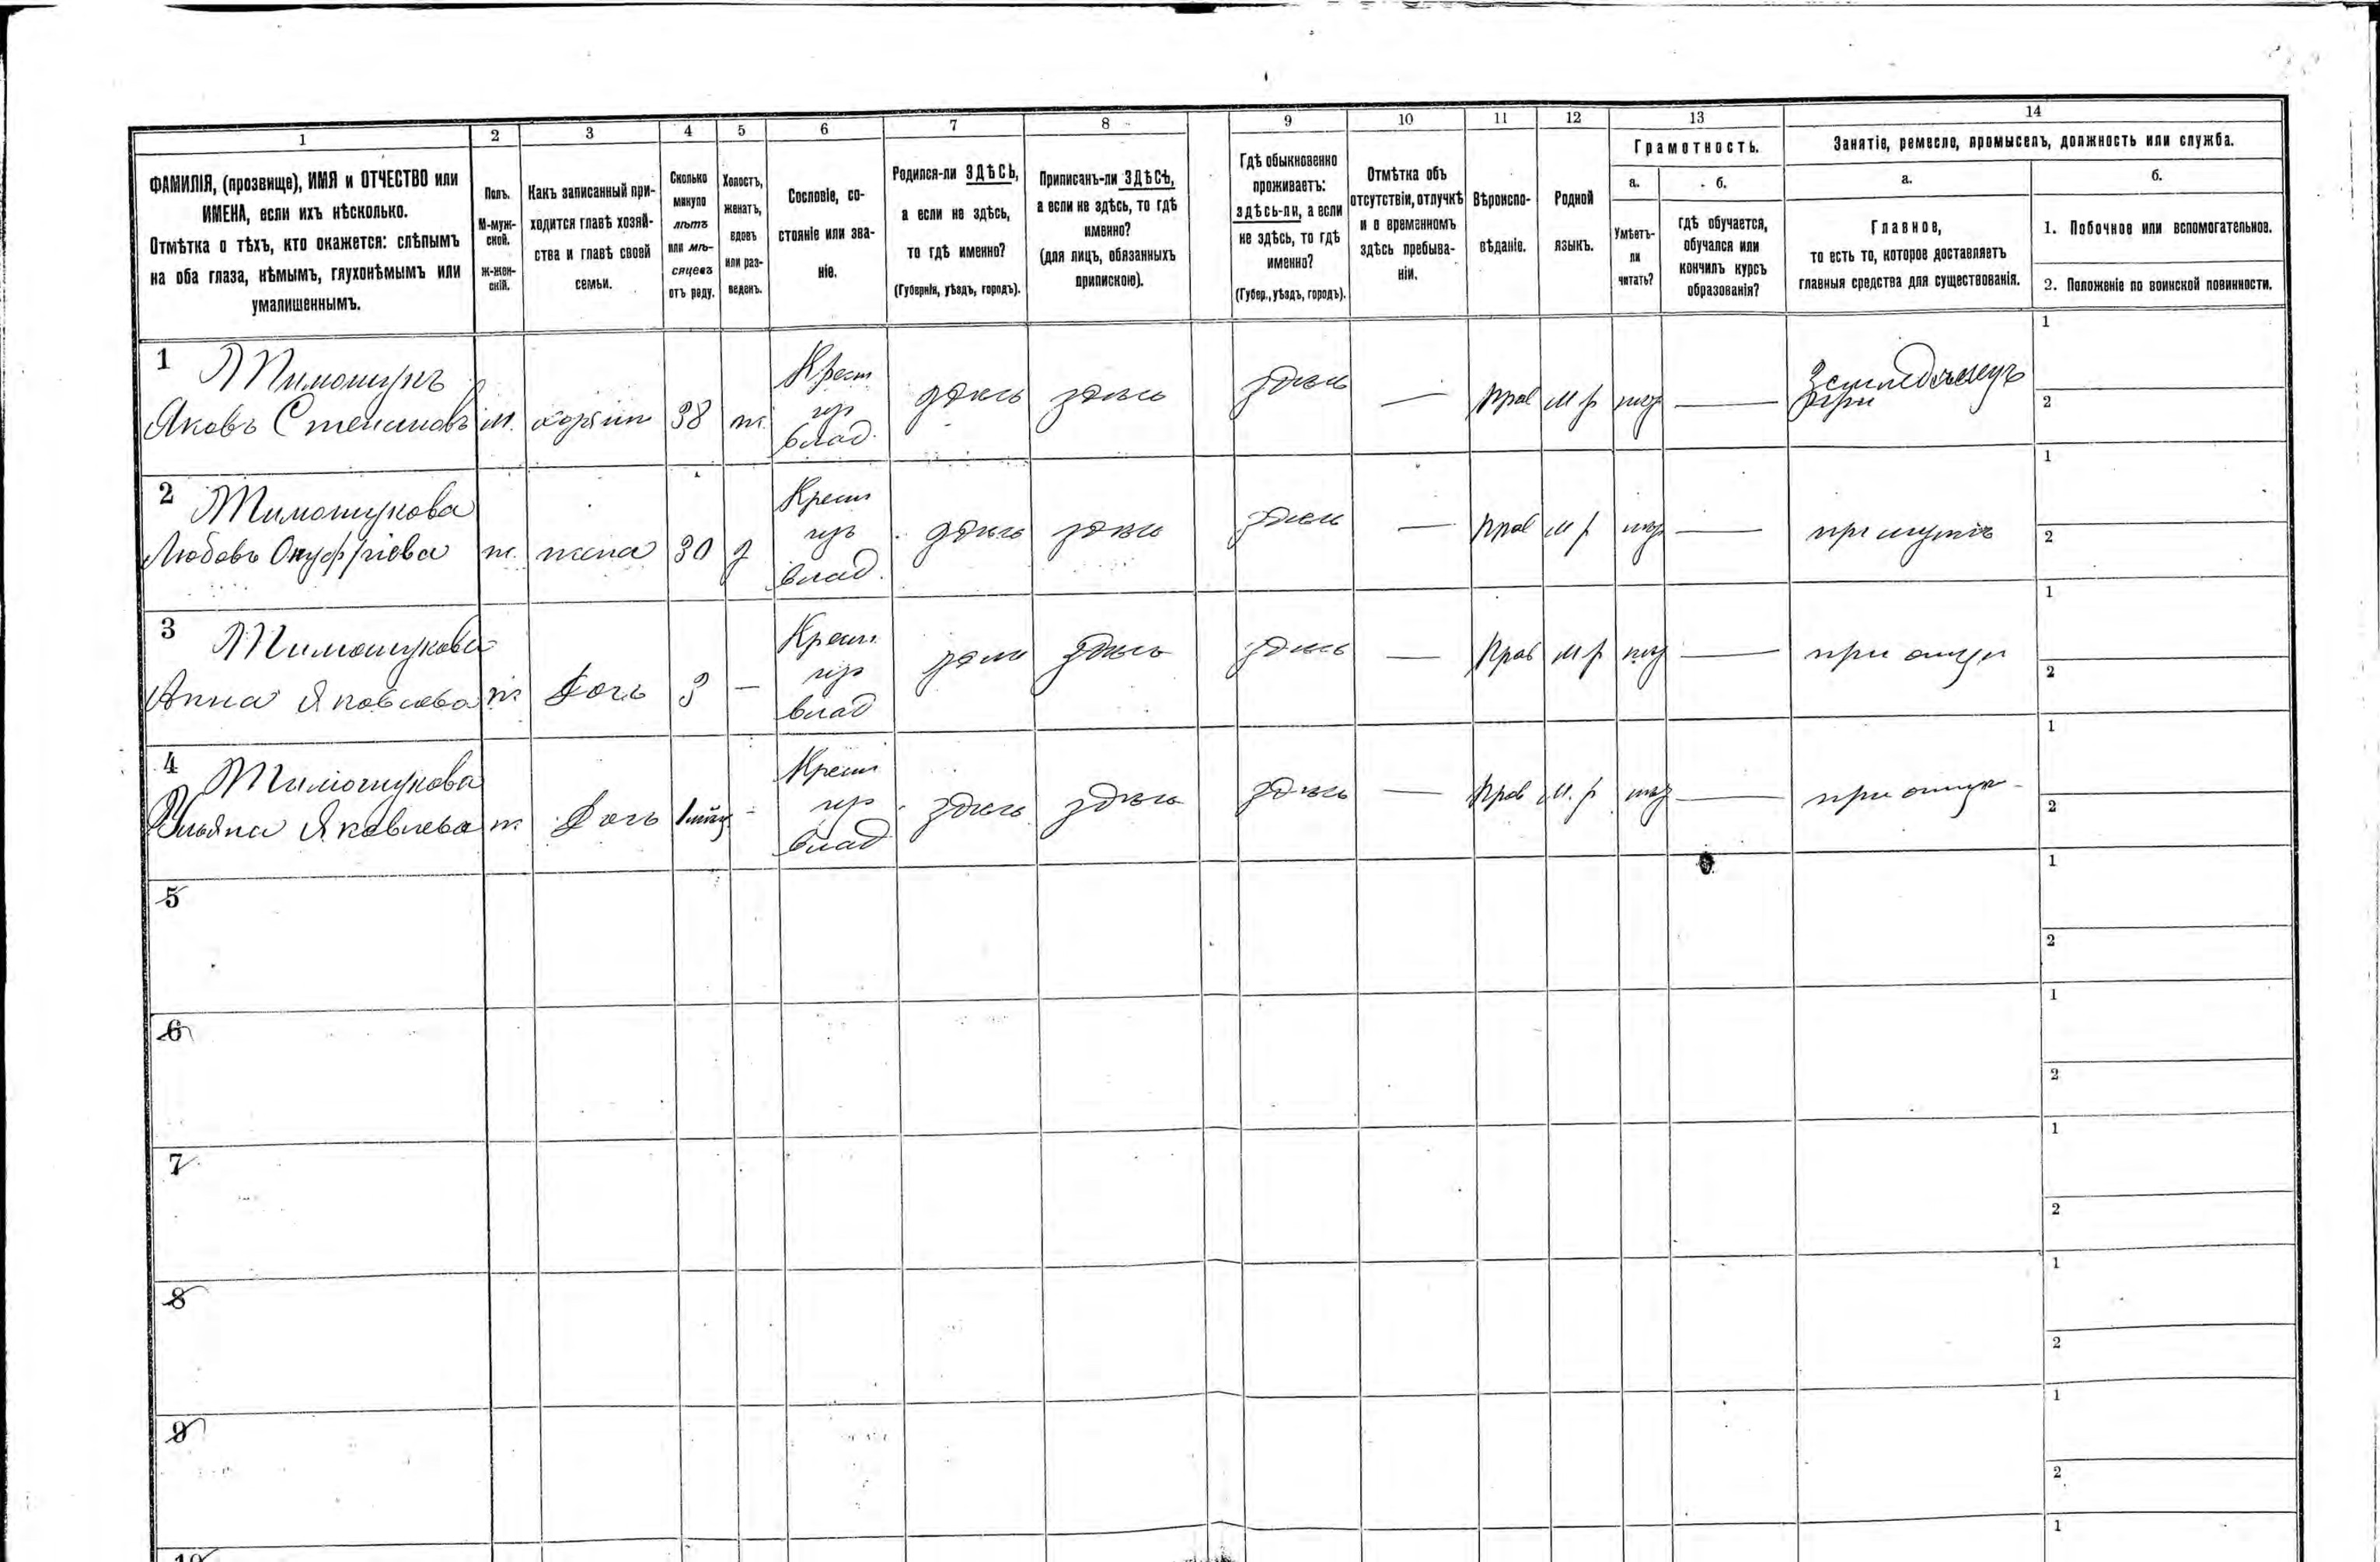 1
2
3
4
5
6
7
8
9
10
11
12
13
14
ФАМИЛІЯ, (прозвище), ИМЯ и ОТЧЕСТВО или
ИМЕНА, если ихъ нѣсколько.
Отмѣтка о тѣхъ, кто окажется: слѣпымъ
на оба глаза, нѣмымъ, глухонѣмымъ или
умалишеннымъ.
Полъ.
М-муж-
ской.
Ж-жен-
скій.
Какъ записанный при-
ходится главѣ хозяй-
ства и главѣ своей
семьи.
Сколько
минуло
лѣтъ
или мѣ-
сяцевъ
отъ роду.
Холостъ,
женатъ,
вдовъ
или раз-
веденъ.
Сословіе, со-
стояніе или зва-
ніе.
Родился-ли ЗДѢСЬ,
а если не здѣсь,
то гдѣ именно?
(Губернія, уѣздъ, городъ).
Приписанъ-ли ЗДѢСЬ,
а если не здѣсь, то гдѣ
именно?
(для лицъ, обязанныхъ
припискою).
Гдѣ обыкновенно
проживаетъ:
здѣсь-ли, а если
не здѣсь, то гдѣ
именно?
(Губер., уѣздъ, городъ).
Отмѣтка объ
отсутствіи, отлучкѣ
и о временномъ
здѣсь пребыва-
ніи.
Вѣроиспо-
вѣданіе.
Родной
языкъ.
Грамотность.
а.
Умѣетъ-
ли
читать?
б.
гдѣ обучается,
обучался или
кончилъ курсъ
образованія?
Занятіе, ремесло, промыселъ, должность или служба.
а.
Главное,
то есть то, которое доставляетъ
главныя средства для существованія.
б.
1. Побочное или вспомогательное.
2. Положеніе по воинской повинности.
1 Тимощукъ
Яковъ Степановъ м. хозяин 38 ж.
Крест
из
влад.
здѣсь здѣсь здѣсь — прав м р — 1
2
2 Тимощукова
Любовь Онуфріева ж. жена 30 з
Крест
из
влад.
здѣсь здѣсь здѣсь — прав м р — при мужѣ 1
2
3 Тимощукова
Анна Яковлева ж Дочь 3 —
Крест.
из
влад
здѣсь здѣсь здѣсь — прав м р — при отцѣ 1
2
4 Тимощукова
Ульяна Яковлева ж Дочь -
Крест
из
влад
здѣсь здѣсь здѣсь — прав м. р — при отцѣ 1
2
5
1
2
6
1
2
7
1
2
8
1
2
9
1
2
10
1